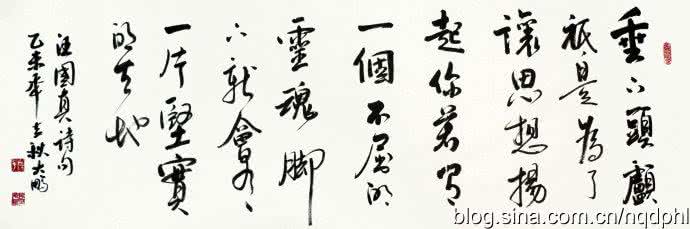 垂下頭顱
祇是為了
讓思想揚
起你若有
一個不屈的
靈魂腳
下就會有
一片堅實
的土地
汪國真詩句
乙未年立秋大鵬
blog.sina.com.cn/nqdphl